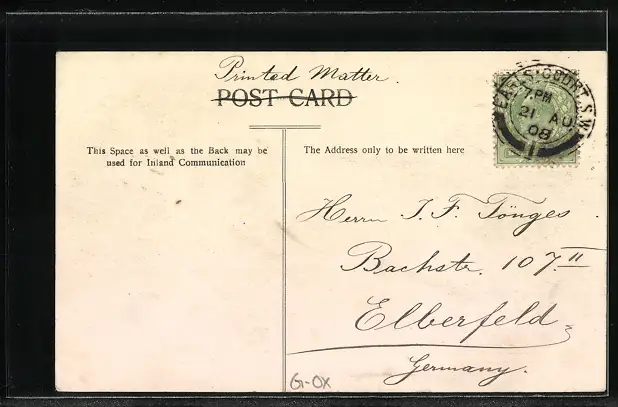 Printed Matter.
POST CARD
This Space as well as the Back may be
used for Inland Communication
The Address only to be written here
EARL'S·COURT.S.W.
7 PM
21 AU
08
11
Herrn J. F. Tönges
Bachstr. 107 II
Elberfeld
Germany.
G-OX